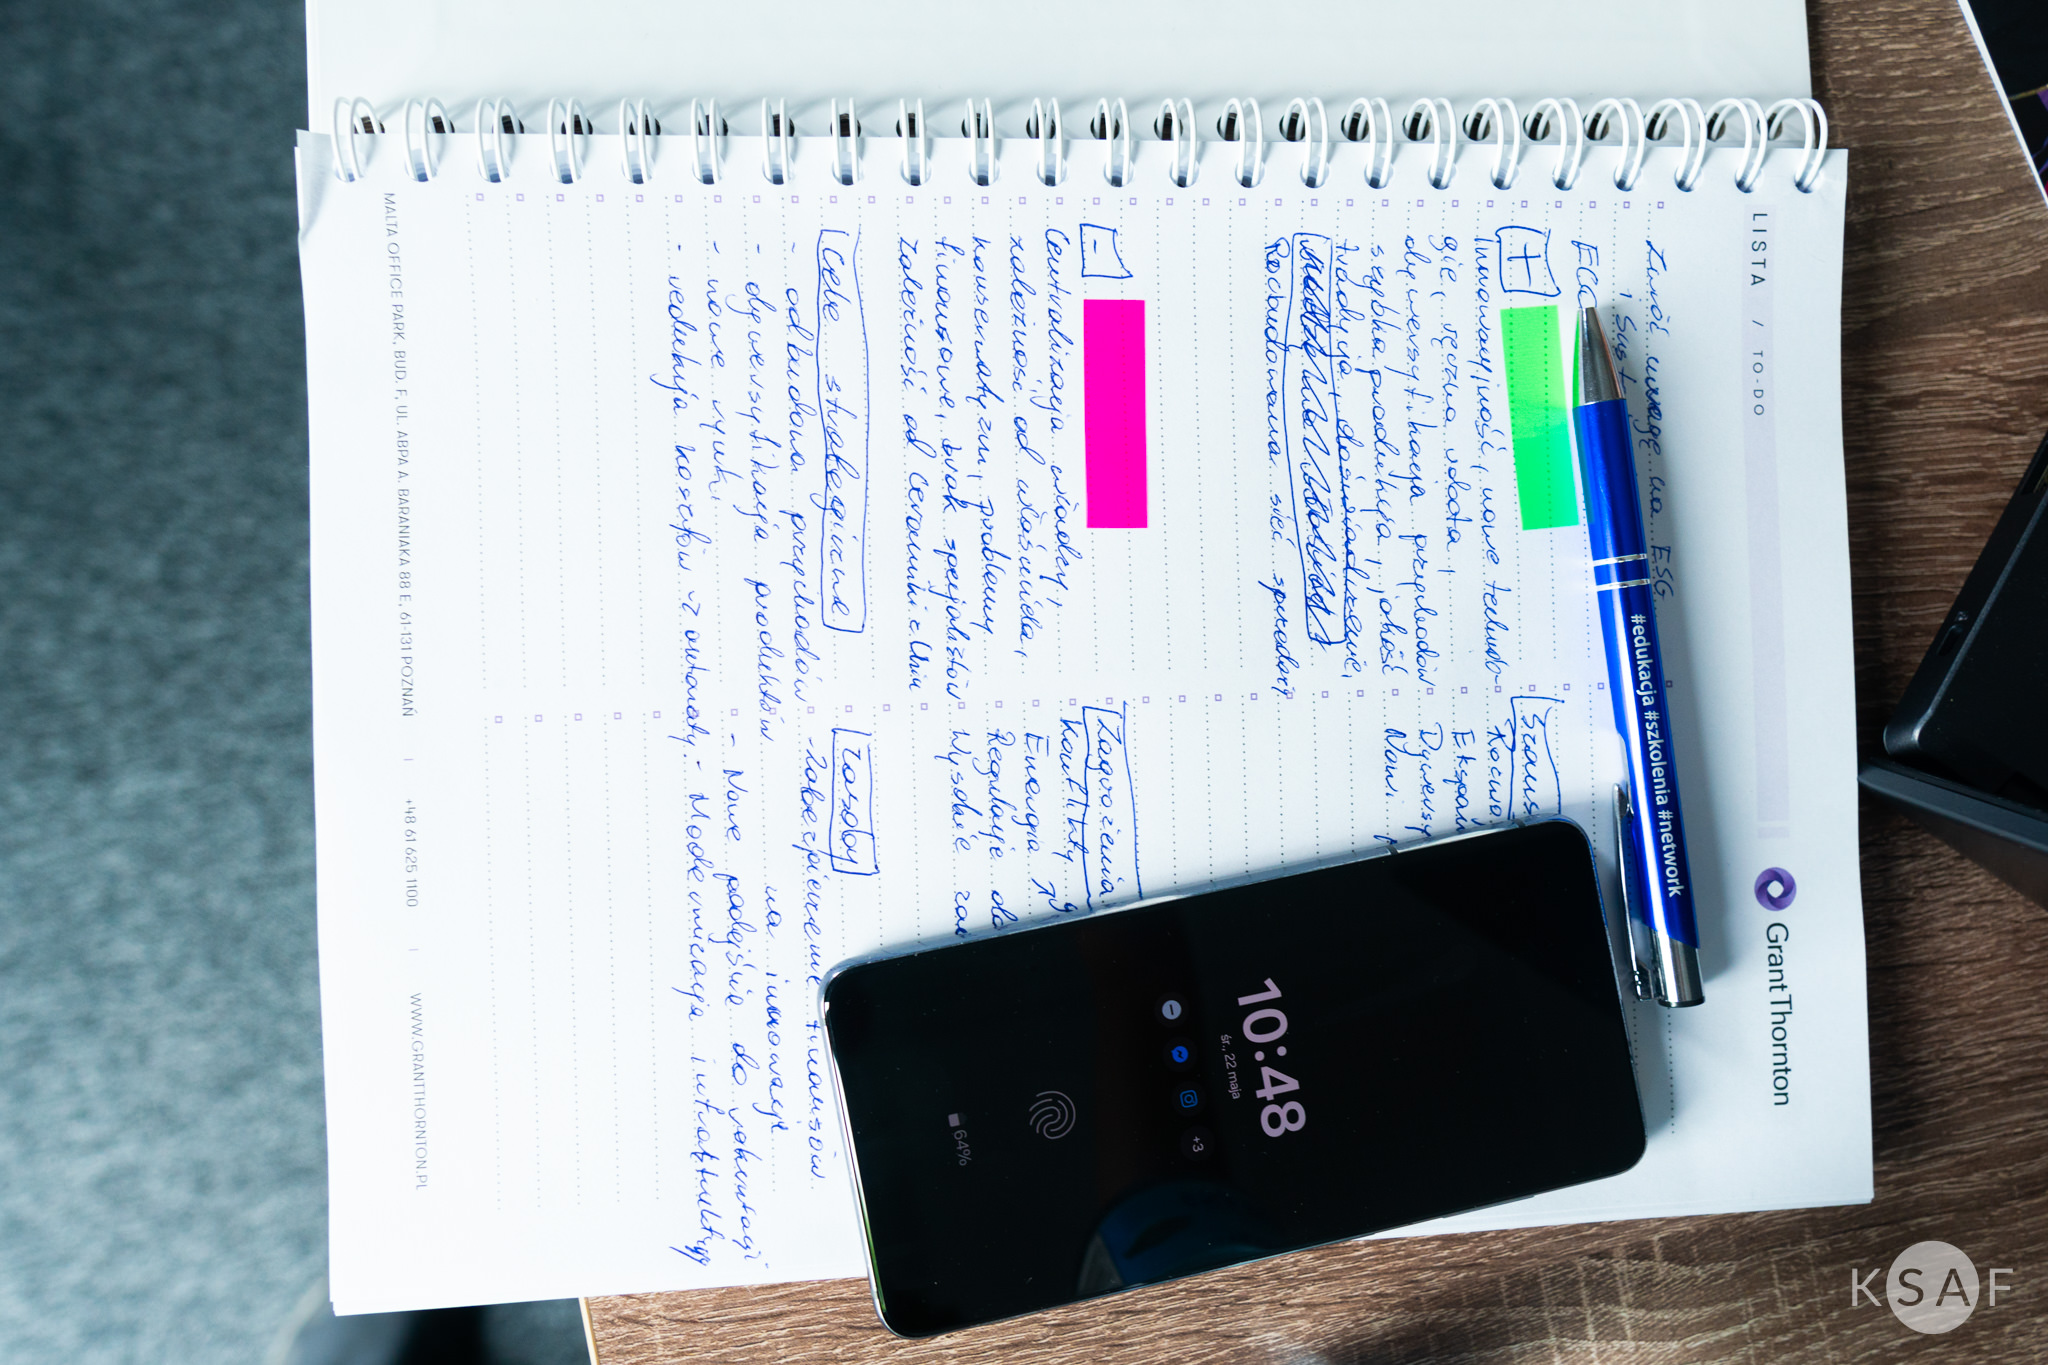 LISTA / TO-DO
GrantThornton
Zwróć uwagę na ESG
ECG
+
Innowacyjność, nowe techno-
gie, ręczna robota,
dywersyfikacja przychodów
szybka produkcja, jakość
tradycja, doświadczenie,
Rozbudowana sieć sprzedaży
Szans
Rozwó
Ekspan
Dywersy
Nowi
-
Centralizacja władzy,
zależność od właściciela,
konserwatyzm, problemy
finansowe, brak specjalistów
zależność od Ceramiki z Unii
Zagrożenia
Konflikty
Energia
Regulacje
Wysokie
Cele strategiczne
- odbudowa przychodów
- dywersyfikacja produktów
- nowe rynki
- redukcja kosztów
Zasoby
- zabezpieczenie finansów
na innowacje
- Nowe podejście do rekrutacji
- Modernizacja infrastruktury
MALTA OFFICE PARK, BUD. F, UL. ABPA A. BARANIAKA 88 E, 61-131 POZNAŃ | +48 61 625 1100 | WWW.GRANTTHORNTON.PL
#edukacja #szkolenia #network
10:48
śr., 22 maja
+3
64%
KSAF